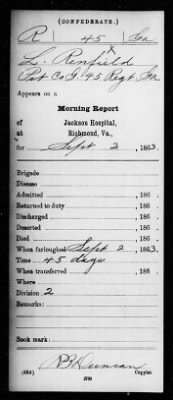 (CONFEDERATE.)
R 45 Ga
L. Renfield
Pvt Co. G. 45 Regt. Ga
Appears on a
Morning Report
of Jackson Hospital,
at Richmond, Va.,
for Sept 2, 1863
Brigade
Disease
Admitted, 186 .
Returned to duty, 186 .
Discharged, 186 .
Deserted, 186 .
Died, 186 .
When furloughed Sept 2, 1863.
Time 45 days
When transferred, 186 .
Where
Division 2
Remarks:
Book mark:
R B Duncan
Copyist.